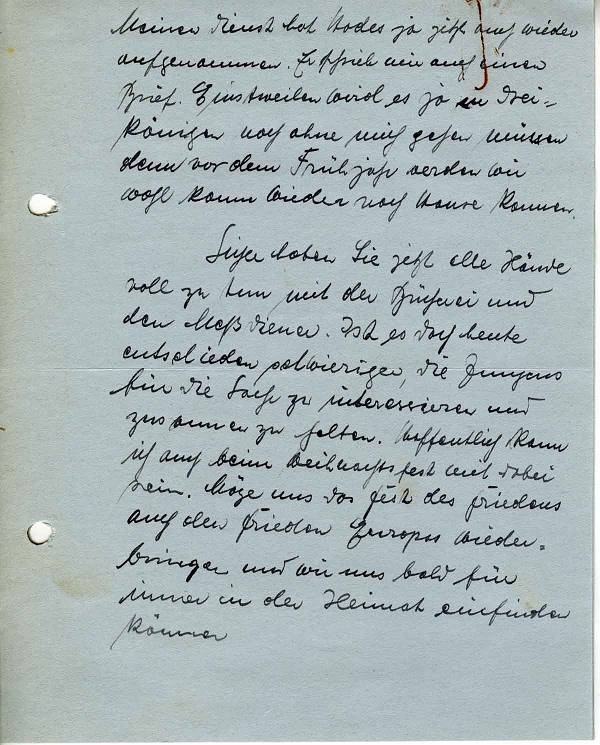 Meinen Dienst hat Hodes ja jetzt auch wieder
aufgenommen. Er schrieb mir auch einen
Brief. Einstweilen wird es ja in Drei-
königen noch ohne mich gehen müssen
denn vor dem Frühjahr werden wir
wohl kaum wieder nach Hause kommen.
Sicher haben Sie jetzt alle Hände
voll zu tun mit der Bücherei und
den Meßdiener. Ist es doch heute
entschieden schwieriger, die Jungens
für die Sache zu interessieren und
zusammen zu halten. Hoffentlich kann
ich auch beim Weihnachtsfest mit dabei
sein. Möge uns das Fest des Friedens
auch den Frieden Europas wieder-
bringen und wir uns bald für
immer in der Heimat einfinden
können